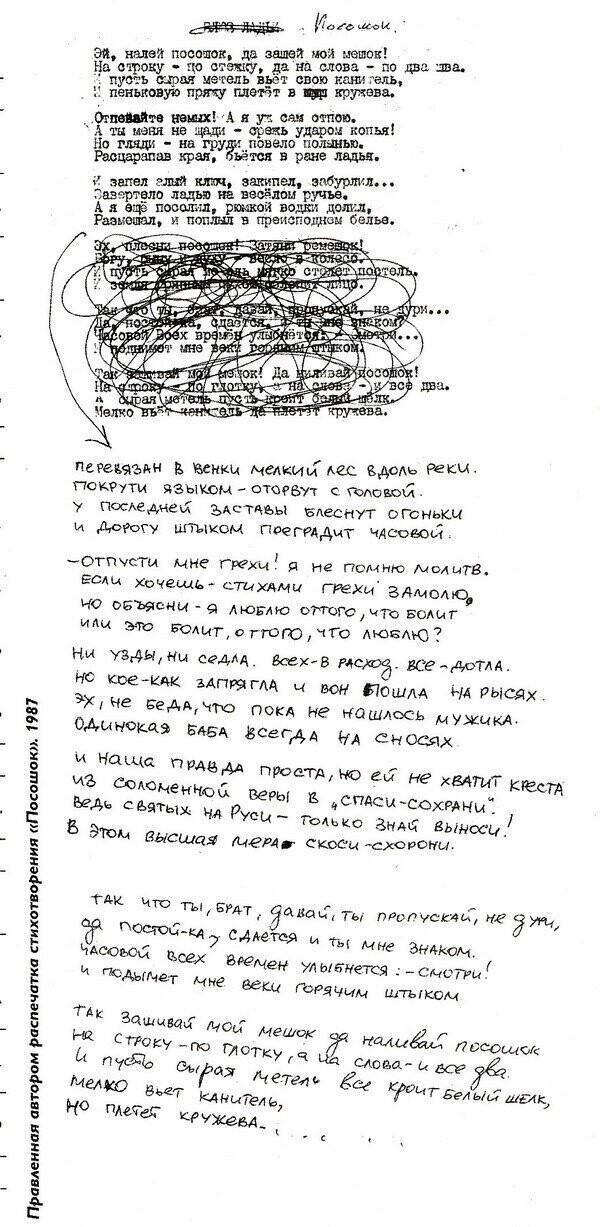 Посошок.
Эй, налей посошок, да зашей мой мешок!
На строку - по стежку, да на слова - по два шва.
И пусть сырая метель вьёт свою канитель,
И пеньковую пряжу плетёт в кружева.
Отпевайте немых! А я уж сам отпою.
А ты меня не щади - срежь ударом копья!
Но гляди - на груди повело полынью.
Расцарапав края, бьётся в ране ладья.
И запел алый ключ, закипел, забурлил...
Завертело ладью на весёлом ручье.
А я ещё посолил, рюмкой водки долил,
Размешал, и поплыл в преисподнем белье.
Эх, плесни посошок! Затяни ремешок!
в колесо.
И пусть сырая метель мягко стелет постель.
И земля лицо.
Так что ты, брат, давай, пропускай, не дури...
Да, постой-ка, сдается, и ты мне знаком?
Часовой Всех времён улыбнётся: - смотри...
И поднимет мне веки горячим штыком.
Так зашивай мой мешок! Да наливай посошок!
На строку - по глотку, а на слова - и все два.
А сырая метель пусть кроит белый шёлк.
Мелко вьёт канитель да плетёт кружева.
ПЕРЕВЯЗАН В ВЕНКИ МЕЛКИЙ ЛЕС ВДОЛЬ РЕКИ.
ПОКРУТИ ЯЗЫКОМ - ОТОРВУТ С ГОЛОВОЙ.
У ПОСЛЕДНЕЙ ЗАСТАВЫ БЛЕСНУТ ОГОНЬКИ
И ДОРОГУ ШТЫКОМ ПРЕГРАДИТ ЧАСОВОЙ.
- ОТПУСТИ МНЕ ГРЕХИ! Я НЕ ПОМНЮ МОЛИТВ.
ЕСЛИ ХОЧЕШЬ - СТИХАМИ ГРЕХИ ЗАМОЛЮ,
НО ОБЪЯСНИ - Я ЛЮБЛЮ ОТТОГО, ЧТО БОЛИТ
ИЛИ ЭТО БОЛИТ, ОТТОГО, ЧТО ЛЮБЛЮ?
НИ УЗДЫ, НИ СЕДЛА. ВСЕХ - В РАСХОД. ВСЕ - ДОТЛА.
НО КОЕ-КАК ЗАПРЯГЛА И ВОН ПОШЛА НА РЫСЯХ.
ЭХ, НЕ БЕДА, ЧТО ПОКА НЕ НАШЛОСЬ МУЖИКА.
ОДИНОКАЯ БАБА ВСЕГДА НА СНОСЯХ.
И НАША ПРАВДА ПРОСТА, НО ЕЙ НЕ ХВАТИТ КРЕСТА
ИЗ СОЛОМЕННОЙ ВЕРЫ В „СПАСИ-СОХРАНИ".
ВЕДЬ СВЯТЫХ НА РУСИ - ТОЛЬКО ЗНАЙ ВЫНОСИ!
В ЭТОМ ВЫСШАЯ МЕРА СКОСИ-СХОРОНИ.
ТАК ЧТО ТЫ, БРАТ, давай, ТЫ ПРОПУСКАЙ, НЕ дури,
да ПОСТОЙ-КА, СДАЕТСЯ И ТЫ МНЕ ЗНАКОМ.
ЧАСОВОЙ ВСЕХ ВРЕМЕН УЛЫБНЕТСЯ: - СМОТРИ!
И ПОДЫМЕТ МНЕ ВЕКИ ГОРЯЧИМ ШТЫКОМ
ТАК ЗАШИВАЙ МОЙ МЕШОК да наливай посошок
НА СТРОКУ - ПО ГЛОТКУ, а на слова - и все два.
И пусть сырая метель все кроит БЕЛЫЙ ШЕЛК,
МЕЛКО ВЬЕТ КАНИТЕЛЬ,
НО ПЛЕТЕТ КРУЖЕВА...
Правленная автором распечатка стихотворения «Посошок». 1987